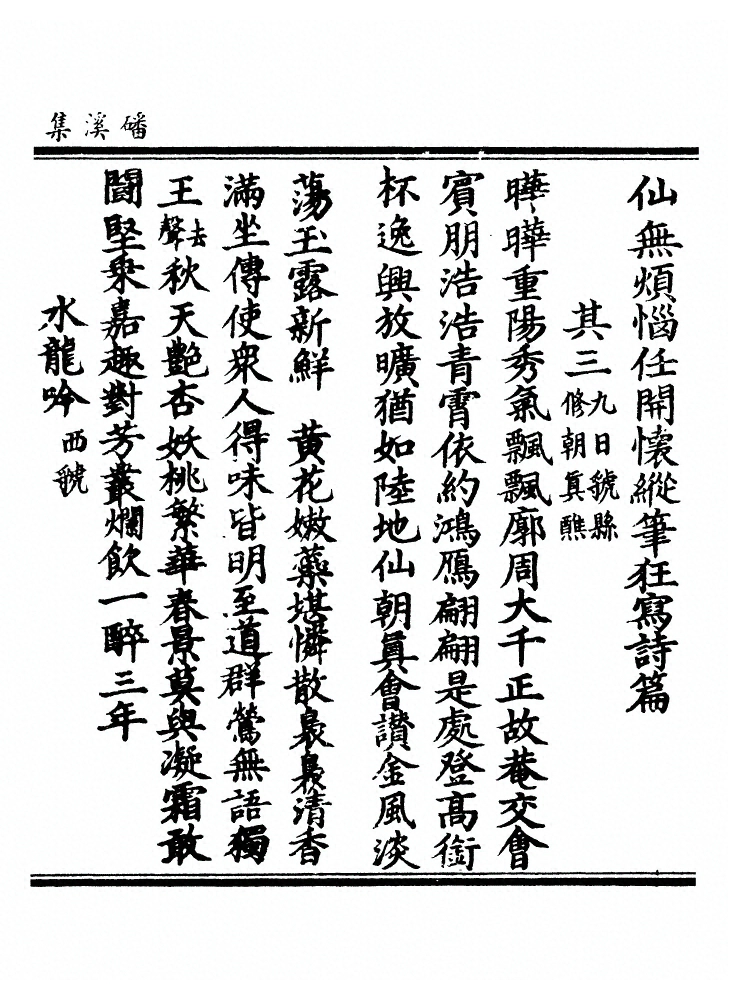 磻溪集
仙無煩惱任開懷縱筆狂寫詩篇
其三九日虢縣修朝真醮
曄曄重陽秀氣飄飄廓周大千正故菴交會
賓朋浩浩青霄依約鴻鴈翩翩是處登高銜
杯逸興放曠猶如陸地仙朝真會讚金風淡
蕩玉露新鮮　黃花嫩蘂堪憐散裊裊清香
滿坐傳使衆人得味皆明至道群鶯無語獨
王去聲秋天艷杏妖桃繁華春景莫與凝霜敢
鬪堅乘嘉趣對芳叢爛飲一醉三年
水龍吟西虢